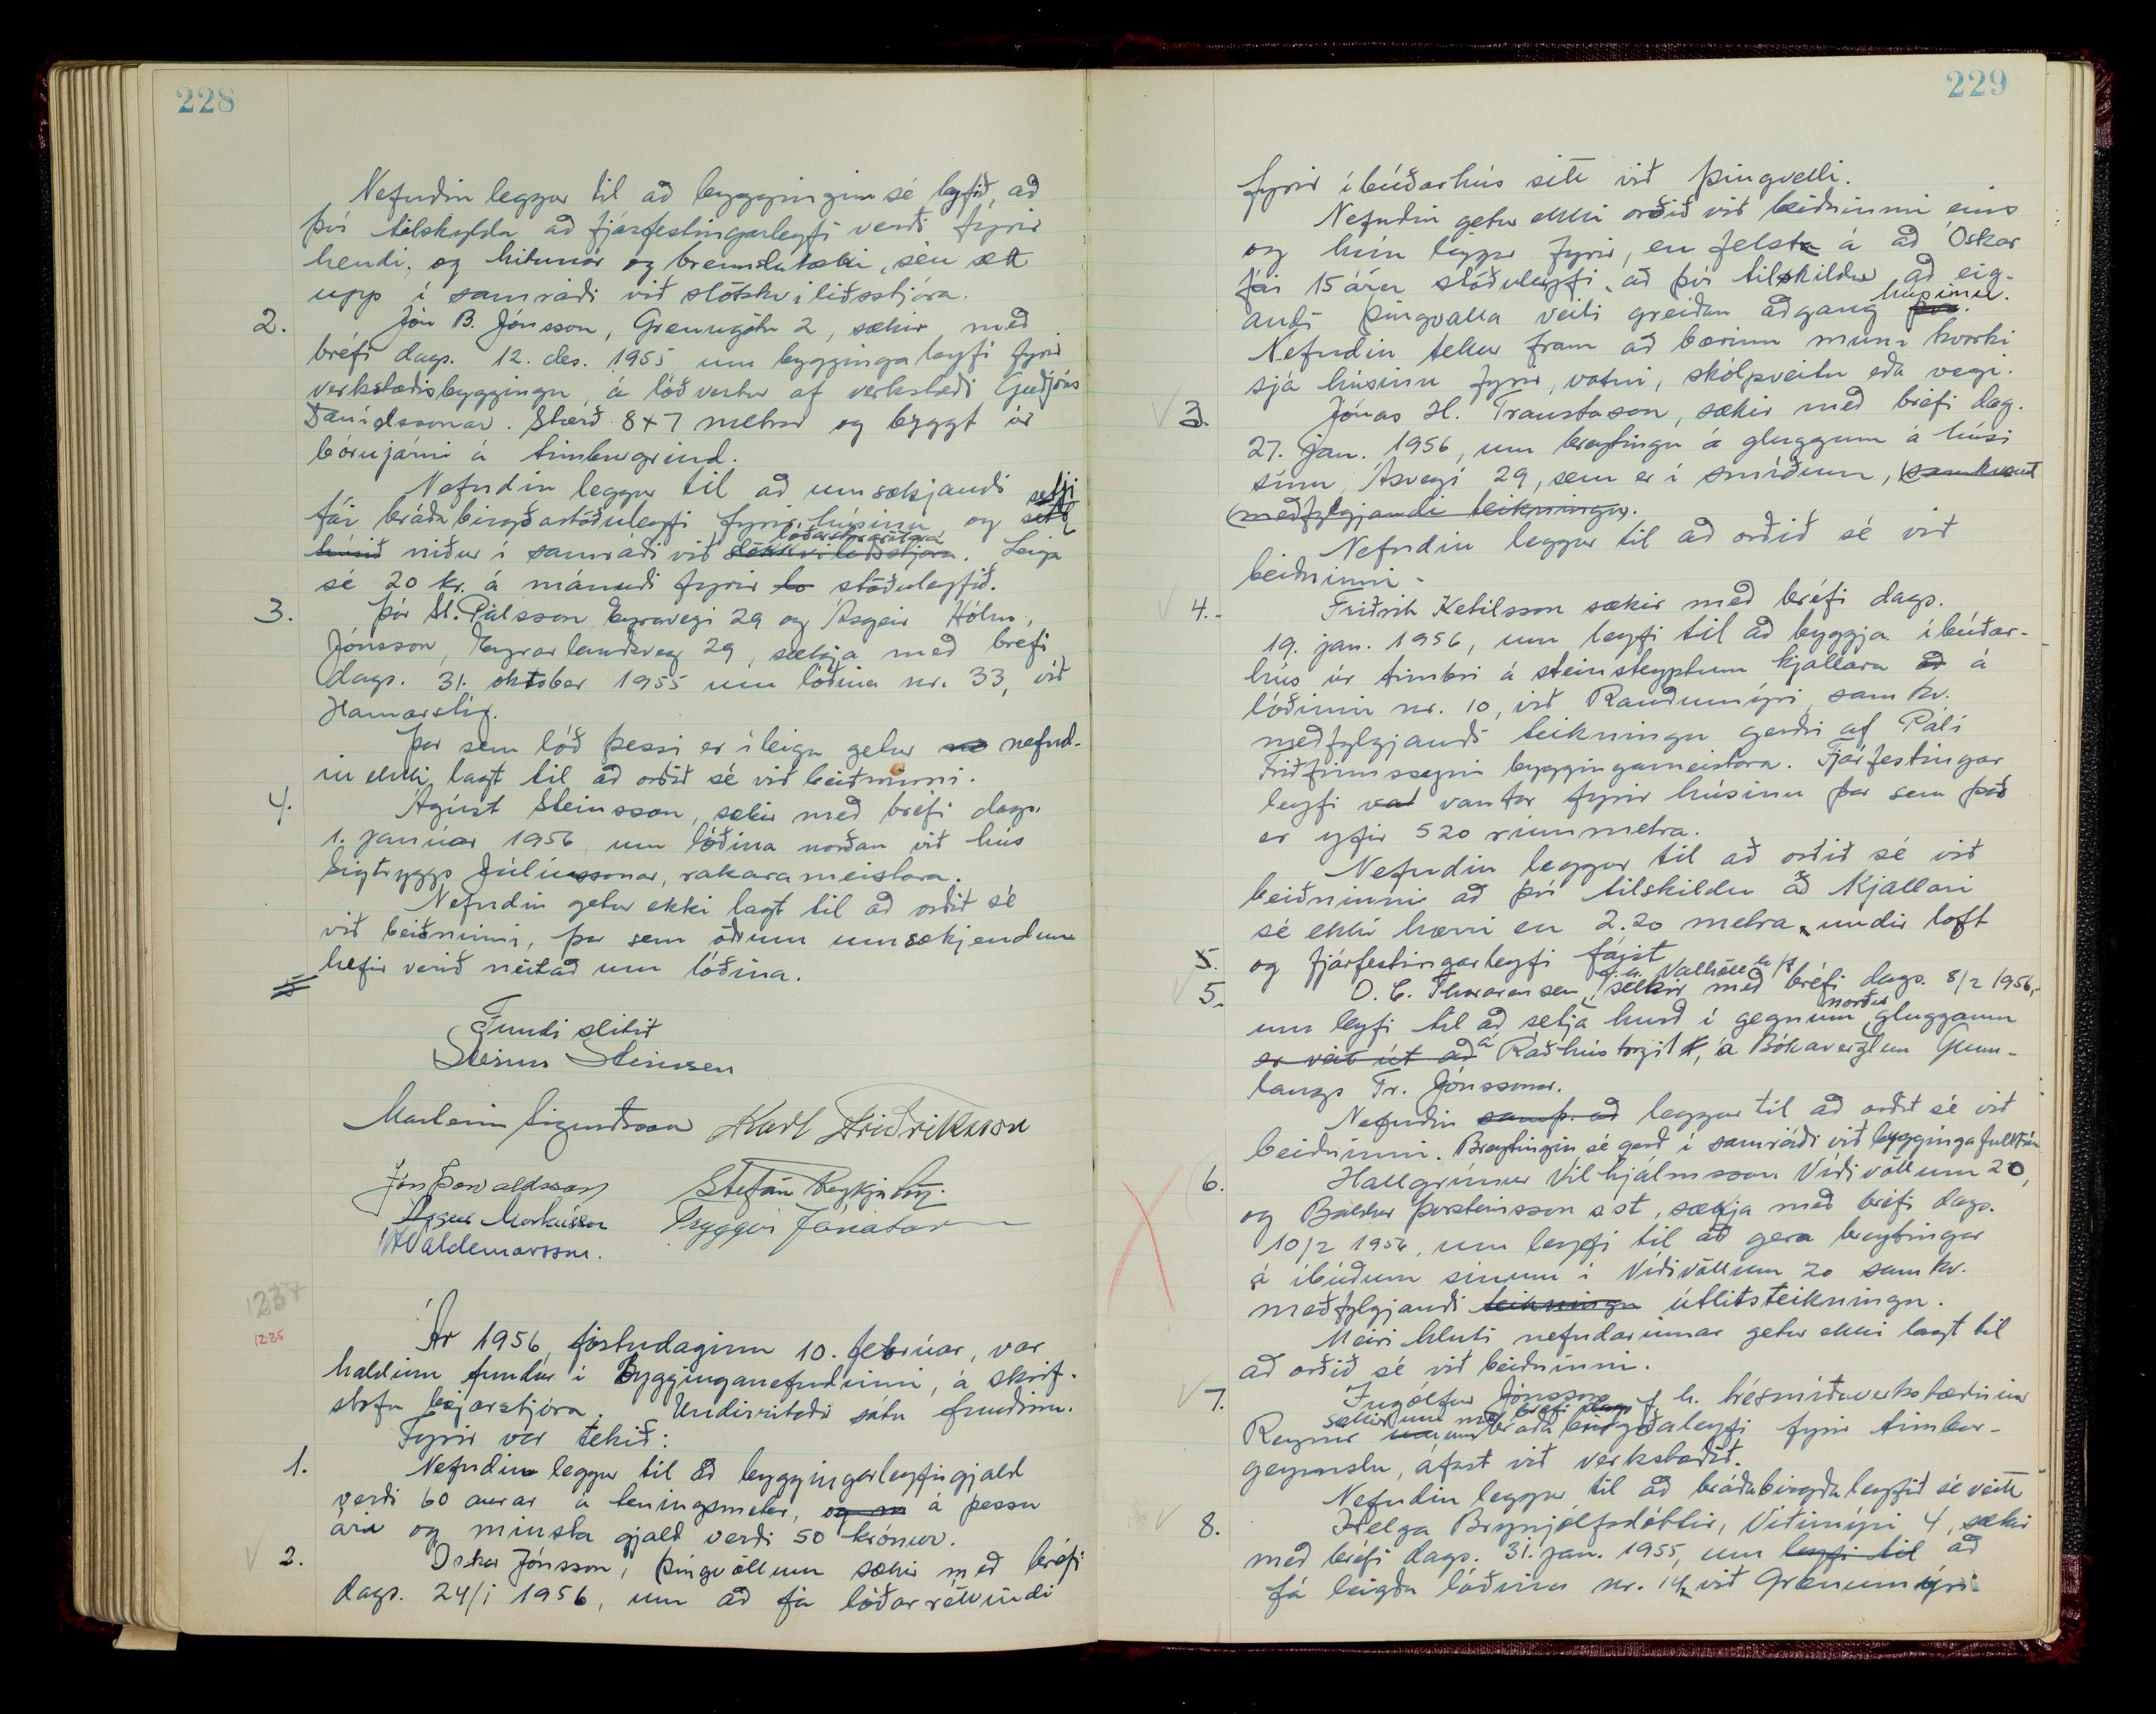 228
Nefndin leggur til að byggingin sé leyfð, að
því tilskyldu að fjárfestingarleyfi verði fyrir
hendi, og hitunar og brennslutæki, séu sett
upp í samráði við slökkviliðsstjóra.
2. Jón B. Jónsson, Grenugötu 2, sækir með
bréfi dags. 12. des. 1955 um byggingaleyfi fyrir
verkstæðisbyggingu á lóð vestur af verkstæði Guðjóns
Daníelssonar. Stærð 8x7 metrar og byggt úr
bárujárni á timburgrind.
Nefndin leggur til að umsækjandi
fái bráðabirgðastöðuleyfi fyrir húsinu og setji
húsið niður í samráði við slökkviliðsstjóra. Leiga
sé 20 kr. á mánuði fyrir stöðuleyfið.
3. Þór M. Pálsson, Eyravegi 29 og Ásgeir Hólm,
Jónsson, Eyrarlandsveg 29, sækja með bréfi
dags. 31. oktober 1955 um lóðina nr. 33, við
Hamarstíg.
Þar sem lóð þessi er í leigu getur nefnd-
in ekki lagt til að orðið sé við beiðninni.
4. Ágúst Steinsson, sækir með bréfi dags.
1. janúar 1956 um lóðina norðan við hús
Sigtryggs Júlíussonar, rakarameistara.
Nefndin getur ekki lagt til að orðið sé
við beiðninni, þar sem öðrum umsækjendum
hefir verið neitað um lóðina.
Fundi slitið
Steinn Steinsen
Marteinn Sigurðsson Karl Friðriksson
Jón Þorvaldsson Stefán Reykjalín
Ásgeir Markússon Tryggvi Jónatansson
Valdemarsson.
1237
1225
Ár 1956, föstudaginn 10. febrúar, var
haldinn fundur í Bygginganefndinni, á skrif-
stofu bæjarstjóra. Undirritaðir sátu fundinn.
Fyrir var tekið:
1. Nefndin leggur til að byggingarleyfisgjald
verði 60 aurar á teningsmeter, á þessu
ári og minsta gjald verði 50 krónur.
2. Óskar Jónsson, Þingvöllum sækir með bréfi
dags. 24/1 1956, um að fá lóðarréttindi
229
fyrir íbúðarhús sitt við Þingvelli.
Nefndin getur ekki orðið við beiðninni eins
og hún liggur fyrir, en felst á að Óskar
fái 15 ára stöðuleyfi, að því tilskildu að eig-
andi Þingvalla veiti greiðan aðgang húsinu.
Nefndin tekur fram að bærinn muni hvorki
sjá húsinu fyrir, vatni, skólpveitu eða vegi.
3. Jónas H. Traustason, sækir með bréfi dag.
27. jan. 1956, um breytingu á gluggum á húsi
sínu, Ásvegi 29, sem er í smíðum, samkvæmt
meðfylgjandi teikningu.
Nefndin leggur til að orðið sé við
beiðninni.
4. Friðrik Ketilsson sækir með bréfi dags.
19. jan. 1956, um leyfi til að byggja íbúðar-
hús úr timbri á steinsteyptum kjallara á
lóðinni nr. 10, við Rauðumýri, sam kv.
meðfylgjandi teikningu gerðri af Páli
Friðfinnssyni byggingameistara. Fjárfestingar
leyfi vantar fyrir húsinu þar sem það
er yfir 520 rúmmetra.
Nefndin leggur til að orðið sé við
beiðninni að því tilskildu að kjallari
sé ekki hærri en 2.20 metra, undir loft
og fjárfestingarleyfi fáist
5. O. C. Thorarensen, f.h. Valhöll h/f sækir með bréfi dags. 8/2 1956,
um leyfi til að setja hurð í gegnum norður gluggann
er veit út að á Ráðhústorgi, á Bókaverzlun Gunn-
laugs Tr. Jónssonar.
Nefndin samþ. að leggur til að orðið sé við
beiðninni. Breytingin sé gerð í samráði við byggingafulltrúa
6. Hallgrímur Vilhjálmsson Víðivöllum 20,
og Baldur Þorsteinsson s st, sækja með bréfi dags.
10/2 1956, um leyfi til að gera breytingar
á íbúðum sínum í Víðivöllum 20 sam kv.
meðfylgjandi teikningu útlitsteikningu.
Meiri hluti nefndarinnar getur ekki lagt til
að orðið sé við beiðninni.
7. Ingólfur Jónsson f. h. trésmíðaverkstæðisins
Reynir sækir um bráðabirgðaleyfi fyrir timbur-
geymslu, áfast við verkstæðið.
Nefndin leggur til að bráðabirgðaleyfið sé veitt
8. Helga Brynjólfsdóttir, Víðimýri 4, sækir
með bréfi dags. 31. jan. 1955, um leyfi til að
fá leigða lóðina nr. 14 við Grænumýri